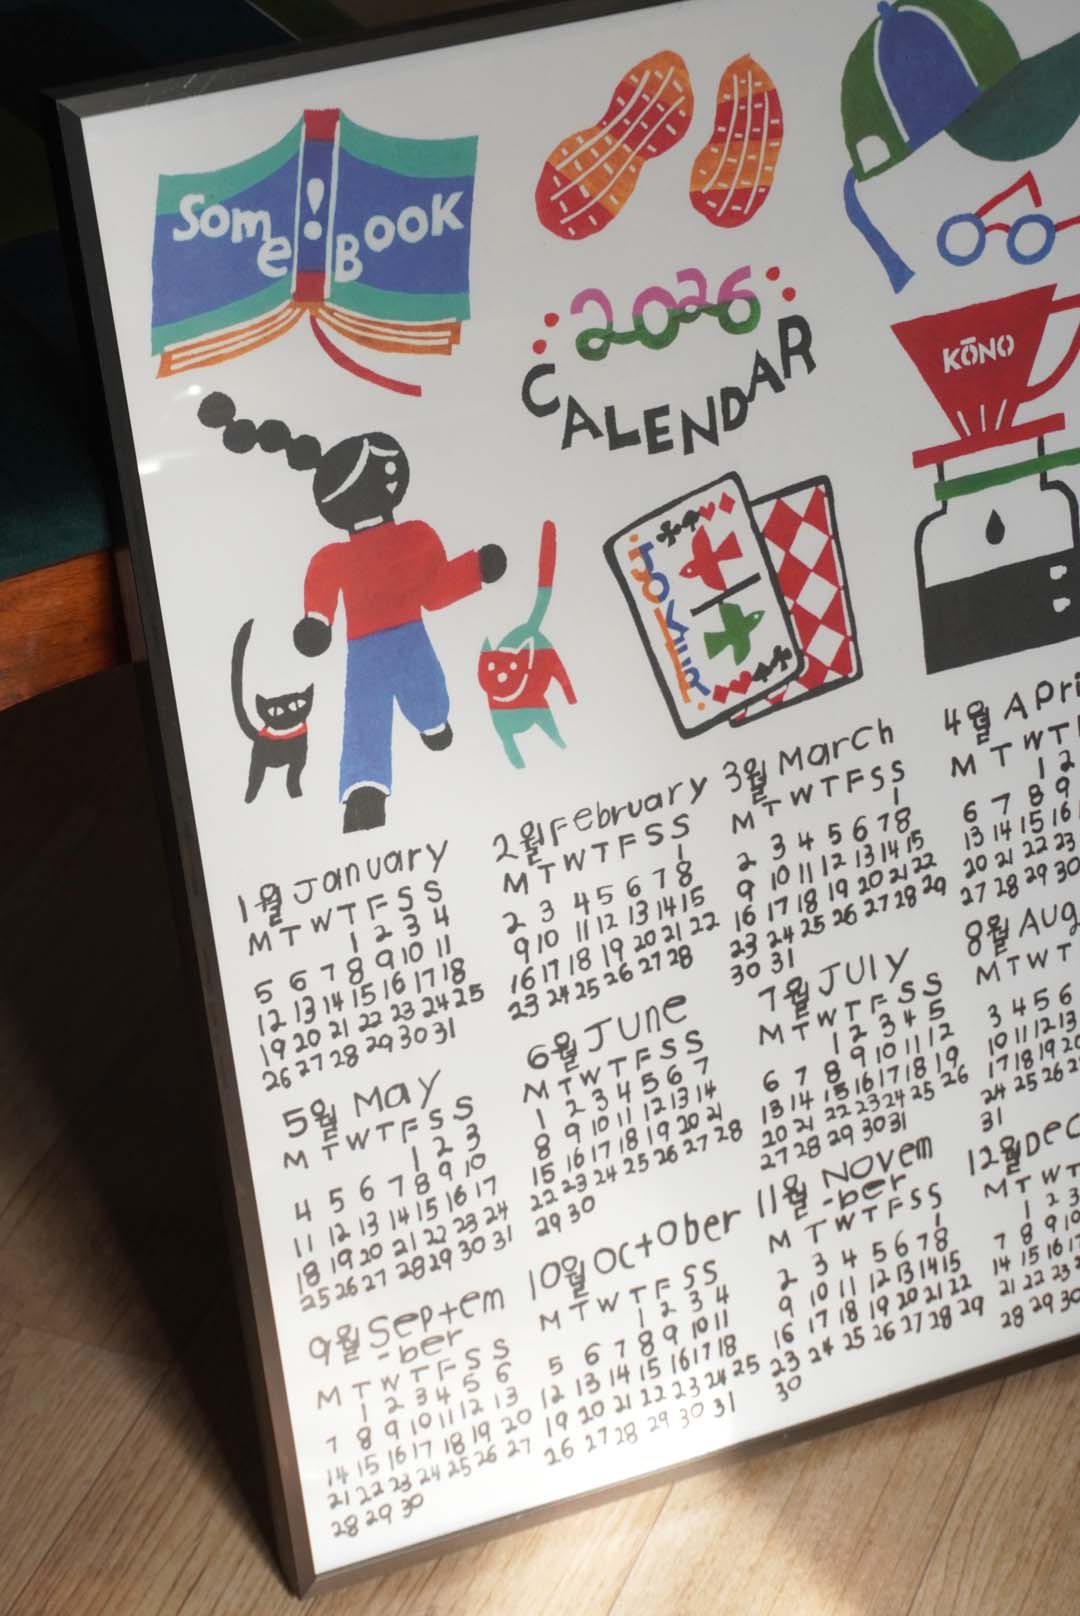 Some! BOOK
2026
CALENDAR
KŌNO
JOKER
1월 January
M T W T F S S
1 2 3 4
5 6 7 8 9 10 11
12 13 14 15 16 17 18
19 20 21 22 23 24 25
26 27 28 29 30 31
2월 February
M T W T F S S
1
2 3 4 5 6 7 8
9 10 11 12 13 14 15
16 17 18 19 20 21 22
23 24 25 26 27 28
3월 March
M T W T F S S
1
2 3 4 5 6 7 8
9 10 11 12 13 14 15
16 17 18 19 20 21 22
23 24 25 26 27 28 29
30 31
4월 Apri
M T W T
1 2
6 7 8 9
13 14 15 16
20 21 22 23
27 28 29 30
5월 May
M T W T F S S
1 2 3
4 5 6 7 8 9 10
11 12 13 14 15 16 17
18 19 20 21 22 23 24
25 26 27 28 29 30 31
6월 June
M T W T F S S
1 2 3 4 5 6 7
8 9 10 11 12 13 14
15 16 17 18 19 20 21
22 23 24 25 26 27 28
29 30
7월 July
M T W T F S S
1 2 3 4 5
6 7 8 9 10 11 12
13 14 15 16 17 18 19
20 21 22 23 24 25 26
27 28 29 30 31
8월 Aug
M T W T
3 4 5 6
10 11 12 13
17 18 19 20
24 25 26 27
31
9월 Septem
-ber
M T W T F S S
1 2 3 4 5 6
7 8 9 10 11 12 13
14 15 16 17 18 19 20
21 22 23 24 25 26 27
28 29 30
10월 October
M T W T F S S
1 2 3 4
5 6 7 8 9 10 11
12 13 14 15 16 17 18
19 20 21 22 23 24 25
26 27 28 29 30 31
11월 Novem
-ber
M T W T F S S
1
2 3 4 5 6 7 8
9 10 11 12 13 14 15
16 17 18 19 20 21 22
23 24 25 26 27 28 29
30
12월 Dec
M T W T
1 2 3
7 8 9 10
14 15 16 17
21 22 23
28 29 30